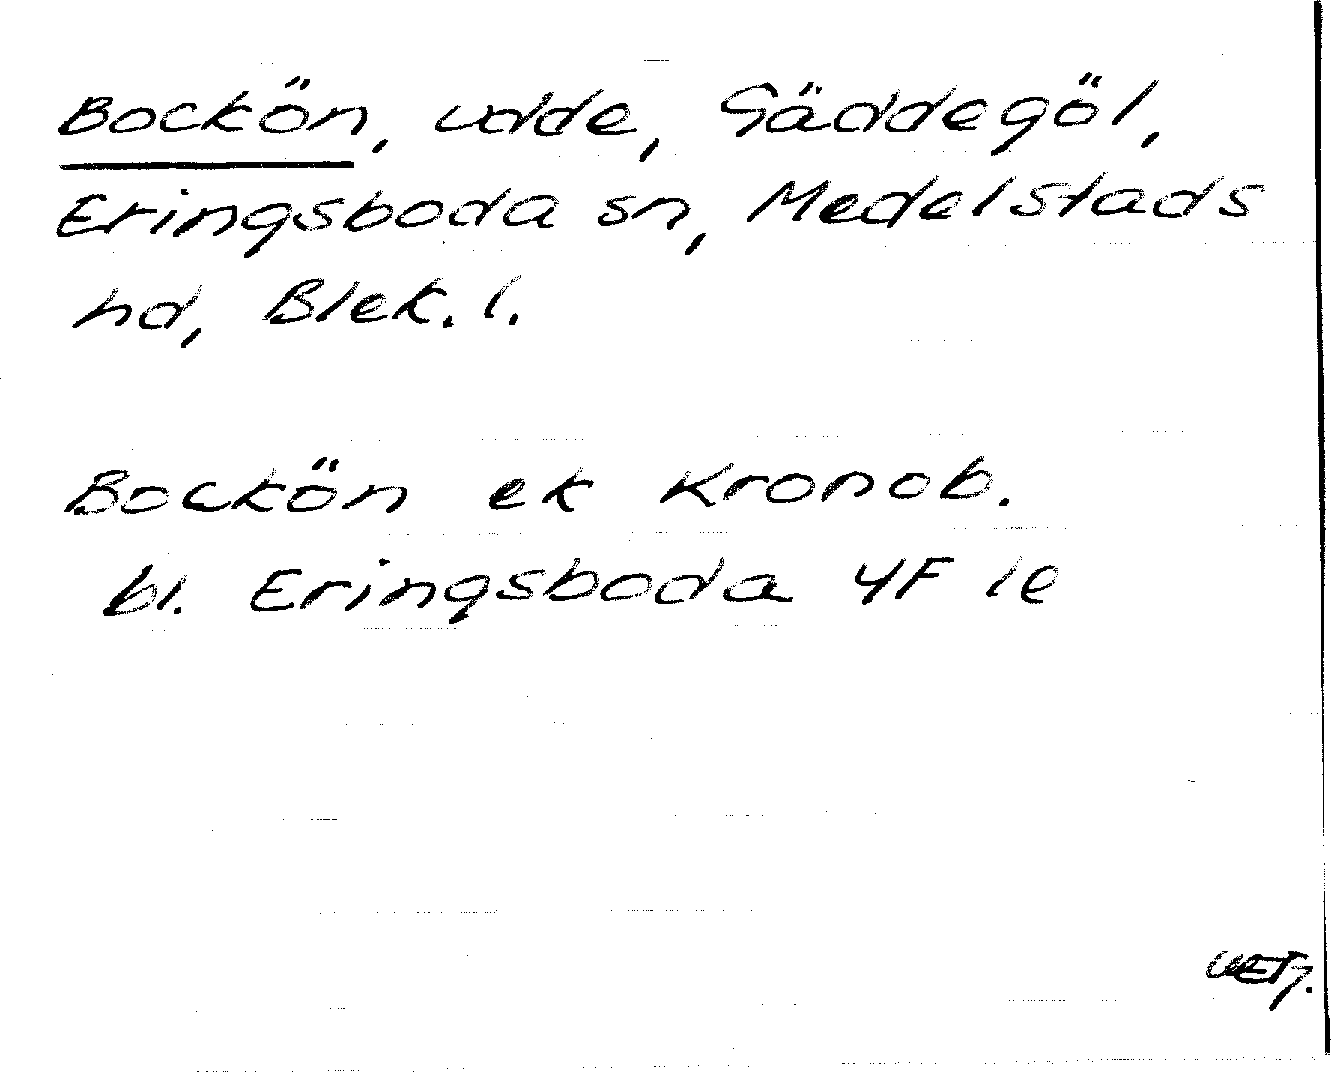 Bockön, udde, Gäddegöl,
Eringsboda sn, Medelstads
hd, Blek. l.
Bockön ek Kronob.
bl. Eringsboda 4F 1e